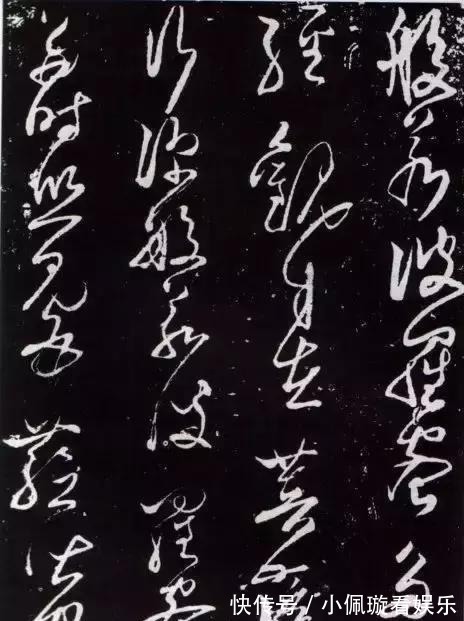 般若波羅蜜多
經觀自在菩薩
行深般若波羅蜜
多時照見五蘊皆
快传号 / 小佩璇看娱乐